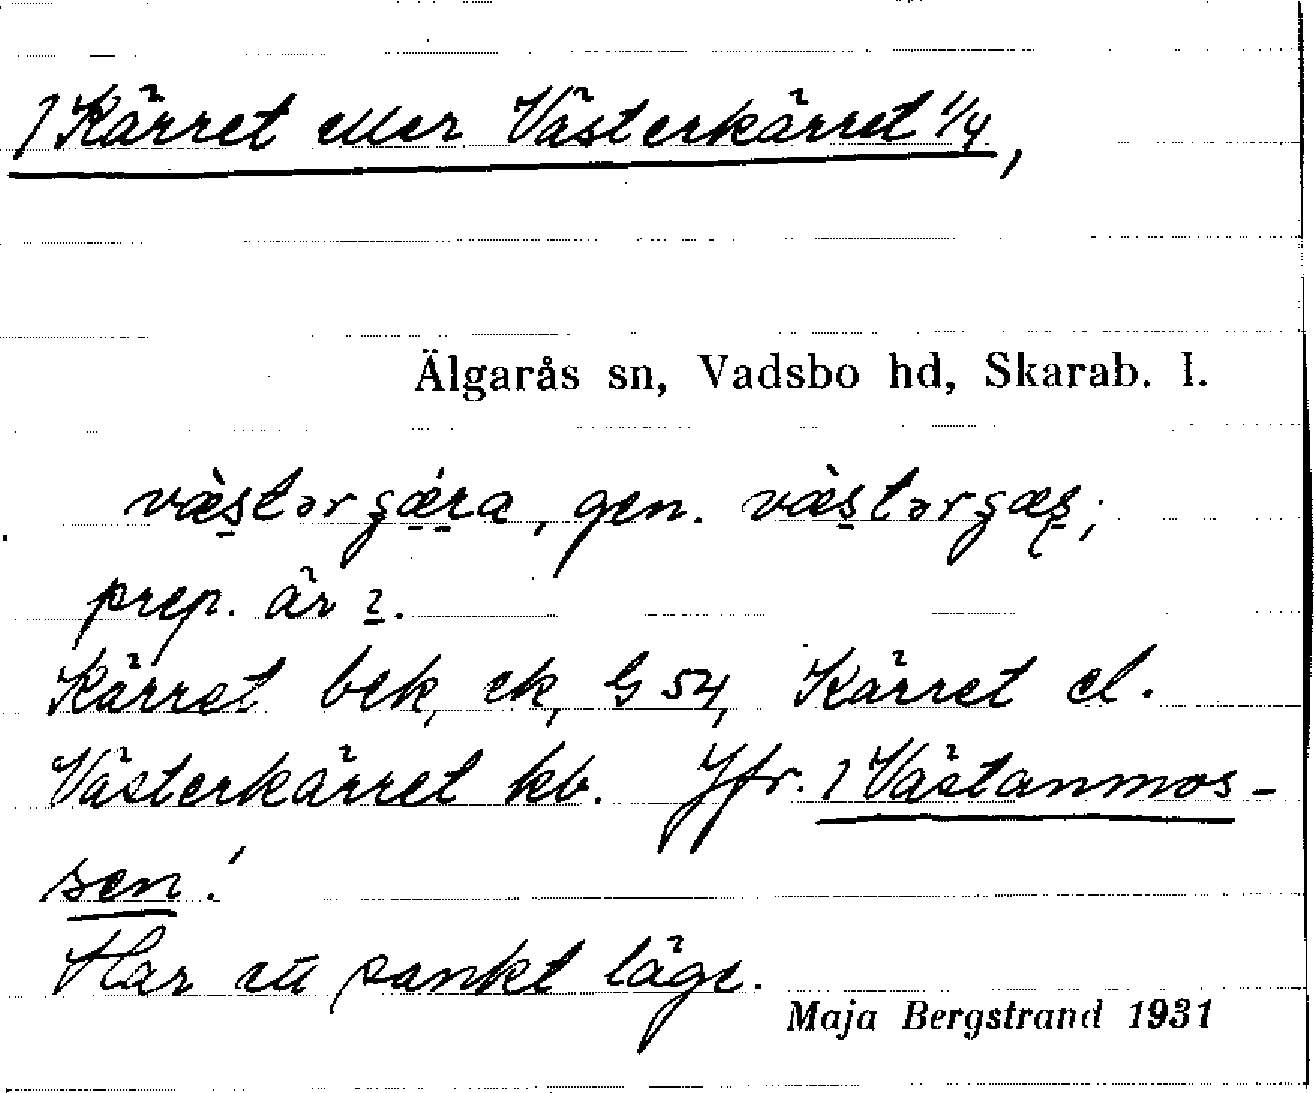 1 Kärret eller Västerkärret 1/4,
Älgarås sn, Vadsbo hd, Skarab. l.
væ̀stərgǽra, gen. væ̀stərgæs;
prep. är 2.
Kärret bek, ek, G 54, Kärret el.
Västerkärret kb. Jfr. 1 Västanmos-
sen!
Har ett sankt läge.
Maja Bergstrand 1931